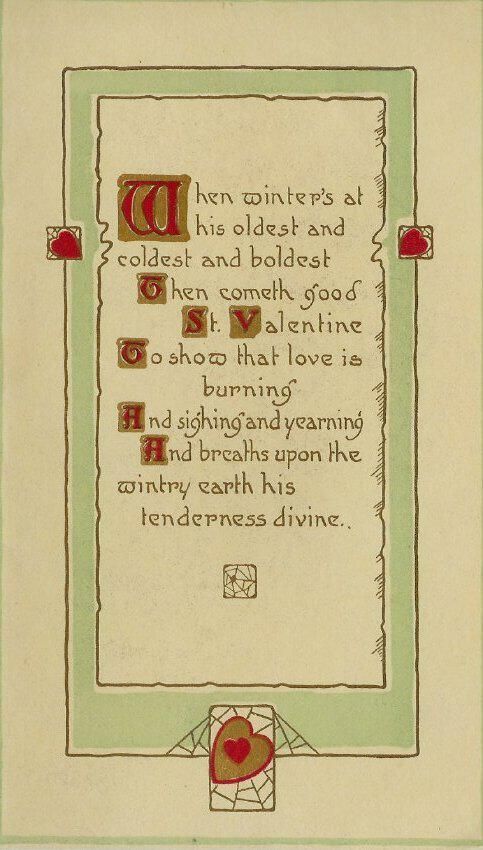 When winter's at
his oldest and
coldest and boldest
Then cometh good
St. Valentine
To show that love is
burning
And sighing and yearning
And breaths upon the
wintry earth his
tenderness divine..